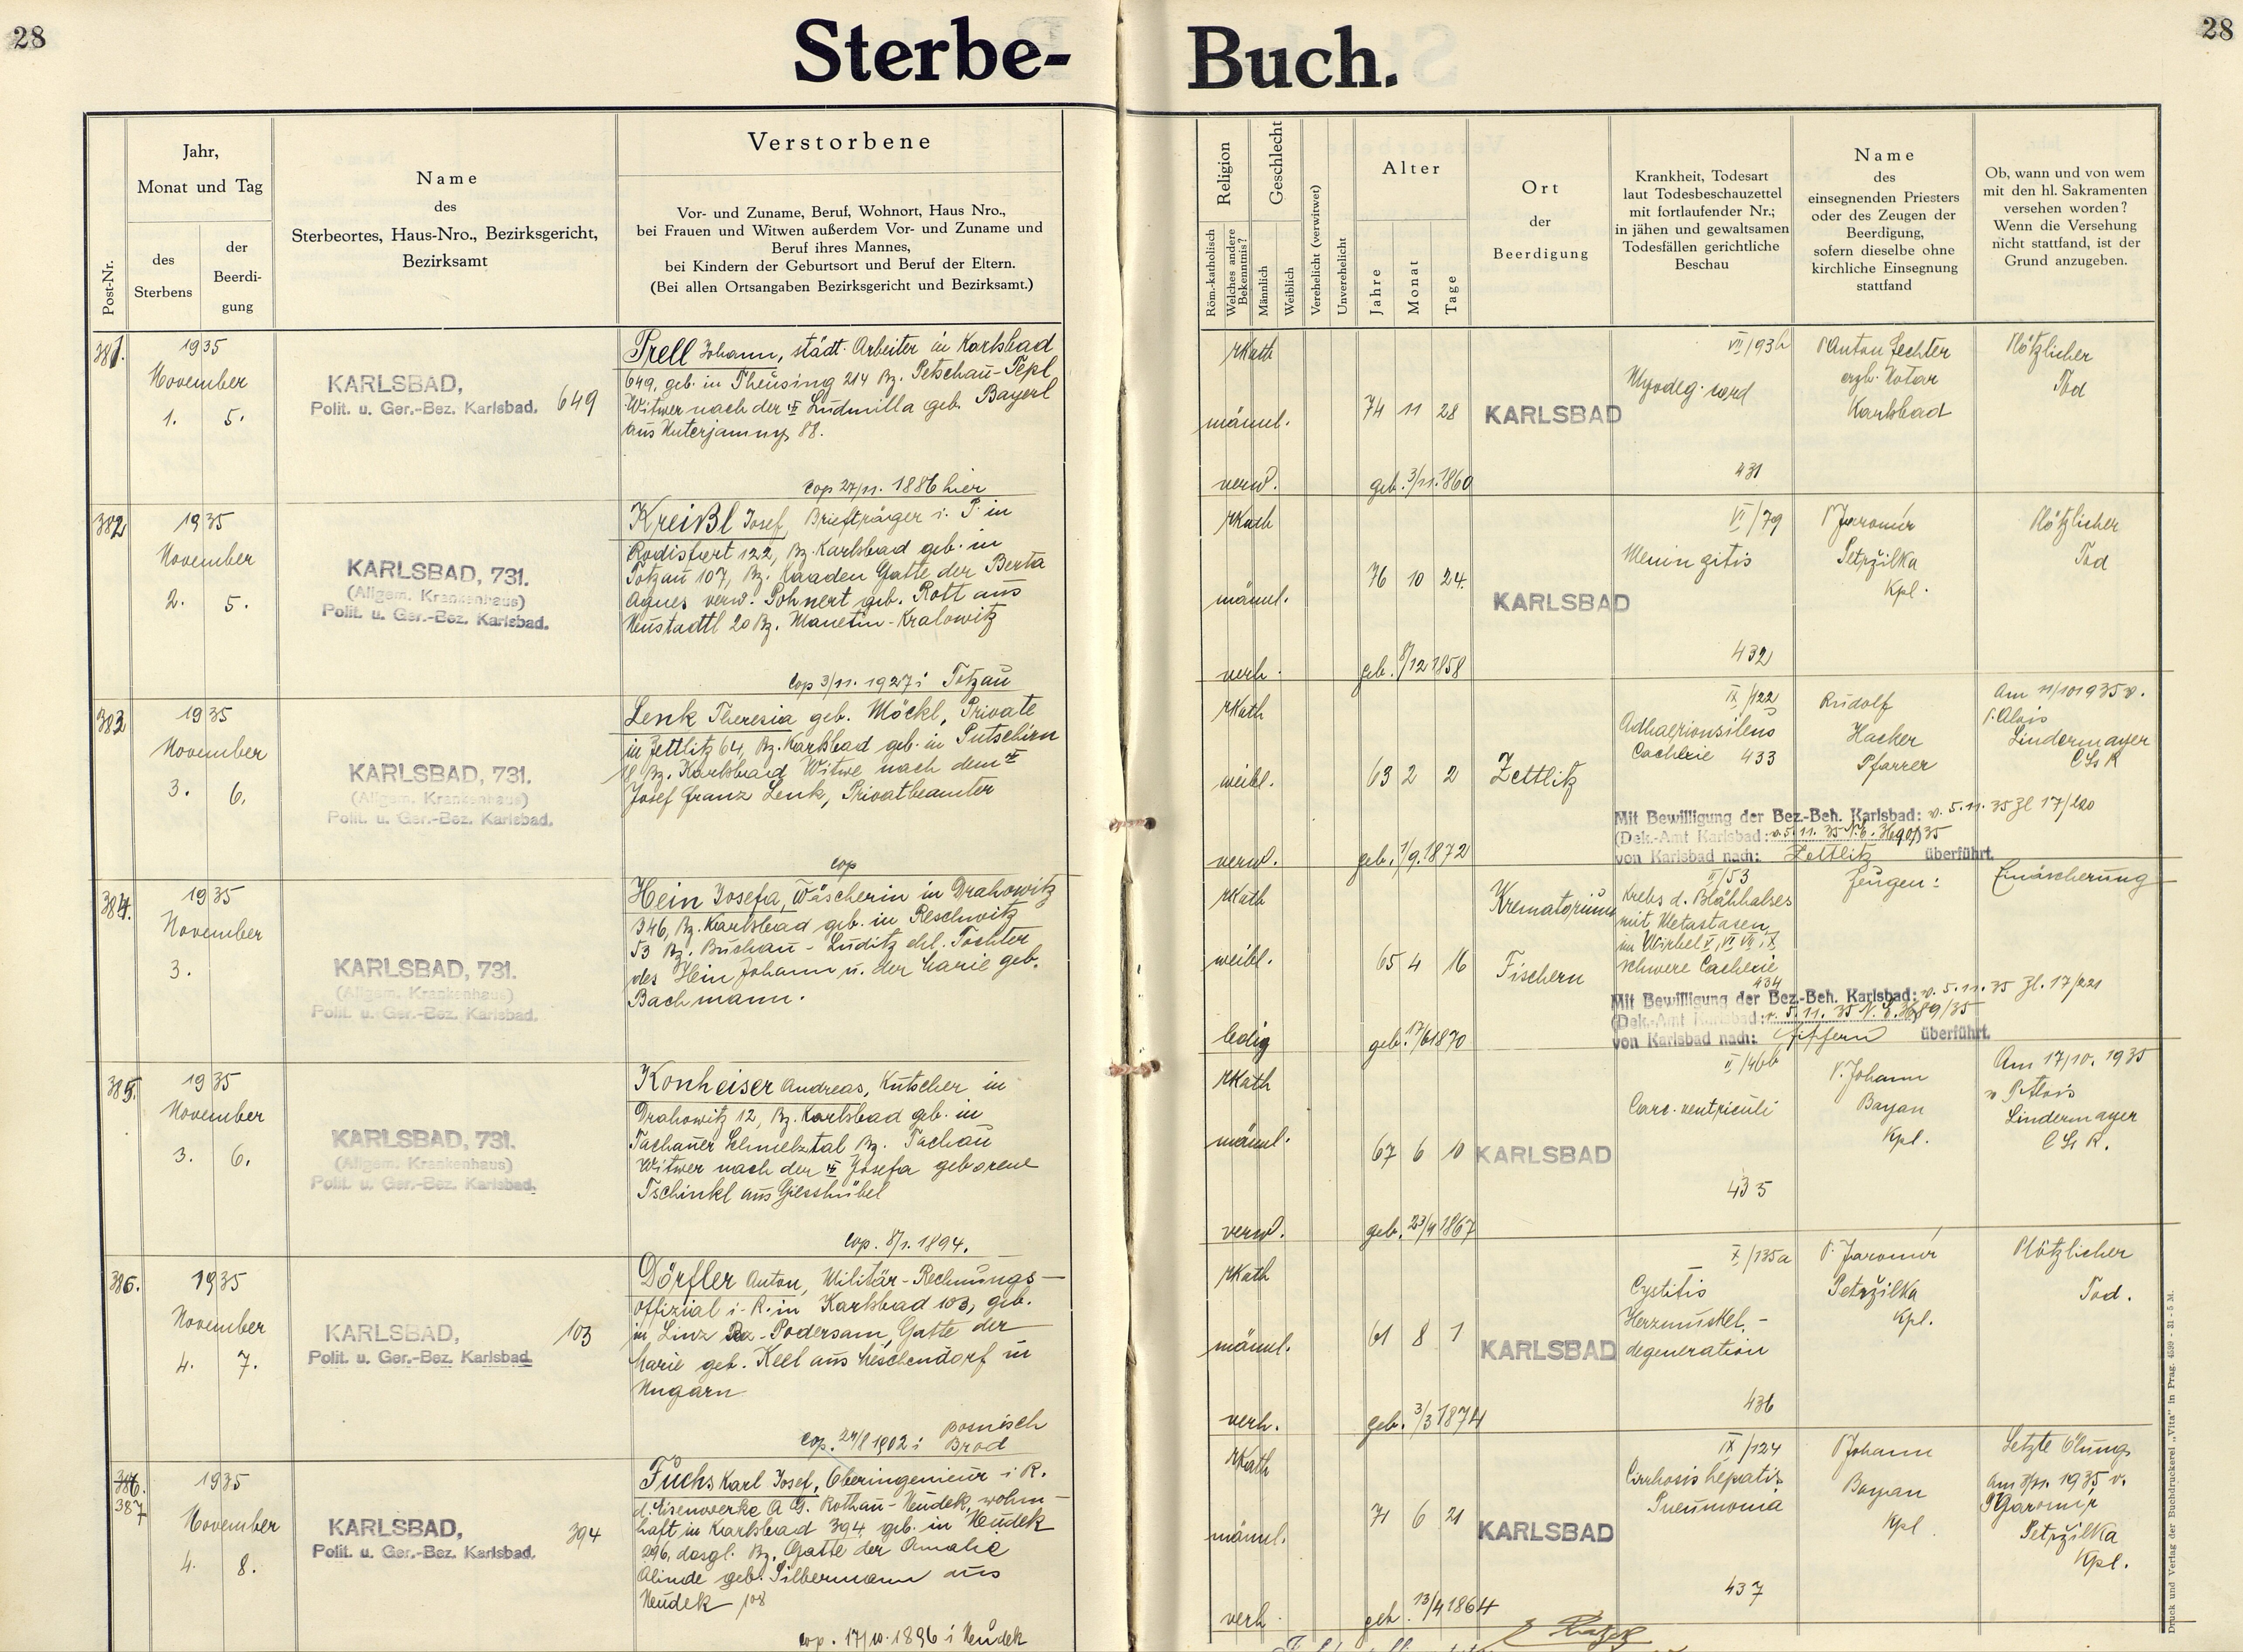 28
Sterbe-
Buch.
28
Post-Nr.
Jahr,
Monat und Tag
des
Sterbens
der
Beerdi-
gung
Name
des
Sterbeortes, Haus-Nro., Bezirksgericht,
Bezirksamt
Verstorbene
Vor- und Zuname, Beruf, Wohnort, Haus Nro.,
bei Frauen und Witwen außerdem Vor- und Zuname und
Beruf ihres Mannes,
bei Kindern der Geburtsort und Beruf der Eltern.
(Bei allen Ortsangaben Bezirksgericht und Bezirksamt.)
Religion
Röm.-katholisch
Welches andere
Bekenntnis?
Geschlecht
Männlich
Weiblich
Verehelicht (verwitwet)
Unverehelicht
Alter
Jahre
Monat
Tage
Ort
der
Beerdigung
Krankheit, Todesart
laut Todesbeschauzettel
mit fortlaufender Nr.;
in jähen und gewaltsamen
Todesfällen gerichtliche
Beschau
Name
des
einsegnenden Priesters
oder des Zeugen der
Beerdigung,
sofern dieselbe ohne
kirchliche Einsegnung
stattfand
Ob, wann und von wem
mit den hl. Sakramenten
versehen worden?
Wenn die Versehung
nicht stattfand, ist der
Grund anzugeben.
381.
1935
November
1. 5.
KARLSBAD,
Polit. u. Ger.-Bez. Karlsbad. 649
Prell Johann, städt. Arbeiter in Karlsbad
649, geb. in Theusing 214 Bz. Petschau-Tepl
Witwer nach der Ludmilla geb. Bayerl
aus Unterjamny 88.
cop 27/11. 1886 hier
rKath
männl.
verw.
74 11 28
geb. 3/11.1860
KARLSBAD
VII/93h
Myodeg. cord
431
P Anton Fechter
erzb. Notar
Karlsbad
Plötzlicher
Tod
382
1935
November
2. 5.
KARLSBAD, 731.
(Allgem. Krankenhaus)
Polit. u. Ger.-Bez. Karlsbad.
Kreißl Josef, Briefträger i. P. in
Rodisfort 122, Bz. Karlsbad geb. in
Totzau 107, Bz. Kaaden Gatte der Berta
Agnes verw. Pohnert geb. Rott aus
Neustadtl 20 Bz. Manetin-Kralowitz
cop 3/11. 1927 i Totzau
rKath
männl.
verh.
76 10 24.
geb. 8/12 1858
KARLSBAD
VI/79
Meningitis
432
P Jaromír
Petržilka
Kpl.
Plötzlicher
Tod
383
1935
November
3. 6.
KARLSBAD, 731.
(Allgem. Krankenhaus)
Polit. u. Ger.-Bez. Karlsbad.
Lenk Theresia geb. Möckl, Private
in Zettlitz 64, Bz. Karlsbad geb. in Putschirn
18 Bz. Karlsbad Witwe nach dem
Josef Franz Lenk, Privatbeamter
cop
rKath
weibl.
verw.
63 2 2
geb. 1/9.1872
Zettlitz
IX/122
Adhaesionsileus
Cachexie 433
Rudolf
Hacker
Pfarrer
Am 11/10 1935 v.
P. Alois
Lindermayer
Mit Bewilligung der Bez.-Beh. Karlsbad: v. 5.11.35 Zl 17/220
(Dek.-Amt Karlsbad: v. 5.11.35
von Karlsbad nach: Zettlitz überführt.
384.
1935
November
3.
KARLSBAD, 731.
(Allgem. Krankenhaus)
Polit. u. Ger.-Bez. Karlsbad.
Hein Josefa, Wäscherin in Drahowitz
346, Bz. Karlsbad geb. in Reschwitz
53 Bz. Buchau-Luditz ehl. Tochter
des Hein Johann u. der Marie geb.
Bachmann.
rKath
weibl.
ledig
65 4 16
geb. 17/6 1870
Krematorium
Fischern
II/53
Krebs d. Blähhalses
mit Metastasen
im Wirbel V, VI, VII, X
schwere Cachexie
434
Zeugen:
Einäscherung
Mit Bewilligung der Bez.-Beh. Karlsbad: v. 5.11.35 Zl. 17/221
(Dek.-Amt Karlsbad: v. 5.11.35
von Karlsbad nach: Fischern überführt.
385.
1935
November
3. 6.
KARLSBAD, 731.
(Allgem. Krankenhaus)
Polit. u. Ger.-Bez. Karlsbad.
Konheiser Andreas, Kutscher in
Drahowitz 12, Bz. Karlsbad geb. in
Tachauer Schmelztal, Bz. Tachau
Witwer nach der Josefa geborene
Tschinkl aus Giesshübel
cop. 8/1. 1894.
rKath
männl.
verw.
67 6 10
geb. 23/4 1867
KARLSBAD
II/46b
Carc. ventriculi
435
P. Johann
Bayan
Kpl.
Am 17/10. 1935
v P. Alois
Lindermayer
386.
1935
November
4. 7.
KARLSBAD,
Polit. u. Ger.-Bez. Karlsbad. 103
Dörfler Anton, Militär-Rechnungs-
offizial i. R. in Karlsbad 103, geb.
in Linz Bz-Podersam, Gatte der
Marie geb. Keel aus Lieschendorf in
Ungarn
cop. 27/8 1902 i Bosnisch
Brod
rKath
männl.
verh.
61 8 1
geb. 3/3 1874
KARLSBAD
X/135a
Cystitis
Herzmuskel-
degeneration
436
P. Jaromír
Petržilka
Kpl.
Plötzlicher
Tod.
386.
387
1935
November
4. 8.
KARLSBAD,
Polit. u. Ger.-Bez. Karlsbad. 394
Fuchs Karl Josef, Oberingenieur i R.
d. Eisenwerke A G. Rothau-Neudek, wohn-
haft in Karlsbad 394 geb. in Neudek
296, desgl. Bz. Gatte der Amalie
Alinde geb. Silbermann aus
Neudek 108
cop. 17/10. 1896 i Neudek
rKath
männl.
verh
71 6 21
geb. 13/4 1864
KARLSBAD
IX/124
Cirrhosis hepatis
Pneumonia
437
P Johann
Bayan
Kpl.
Letzte Ölung
am 1935 v.
P Jaromír
Petržilka
Kpl.
Druck und Verlag der Buchdruckerei „Vita“ in Prag. 4599 - 31 - 5 M.